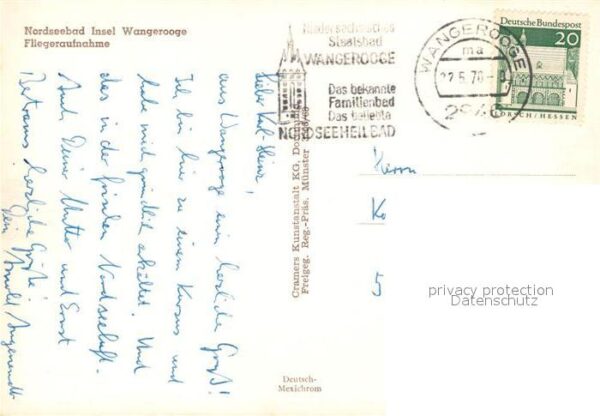 Nordseebad Insel Wangerooge
Fliegeraufnahme
Niedersächsisches
Staatsbad
WANGEROOGE
Das bekannte
Familienbad
Das beliebte
NORDSEEHEILBAD
WANGEROOGE
ma
22.5.70
2946
Deutsche Bundespost
20
LORSCH/HESSEN
Lieber Karl-Heinz,
aus Wangerooge ein herzliche Gruß!
Ich bin hier zu einem Kursus und
habe mich gründlich erkältet. Und
das in der frischen Nordseeluft.
Auch Deiner Mutter und Ernst
herzliche Grüße!
Dein Arnold
Cramers Kunstanstalt KG, Dortmund
Freigeg. Reg.-Präs. Münster
Herrn
K
5
privacy protection
Datenschutz
Deutsch-
Mexichrom